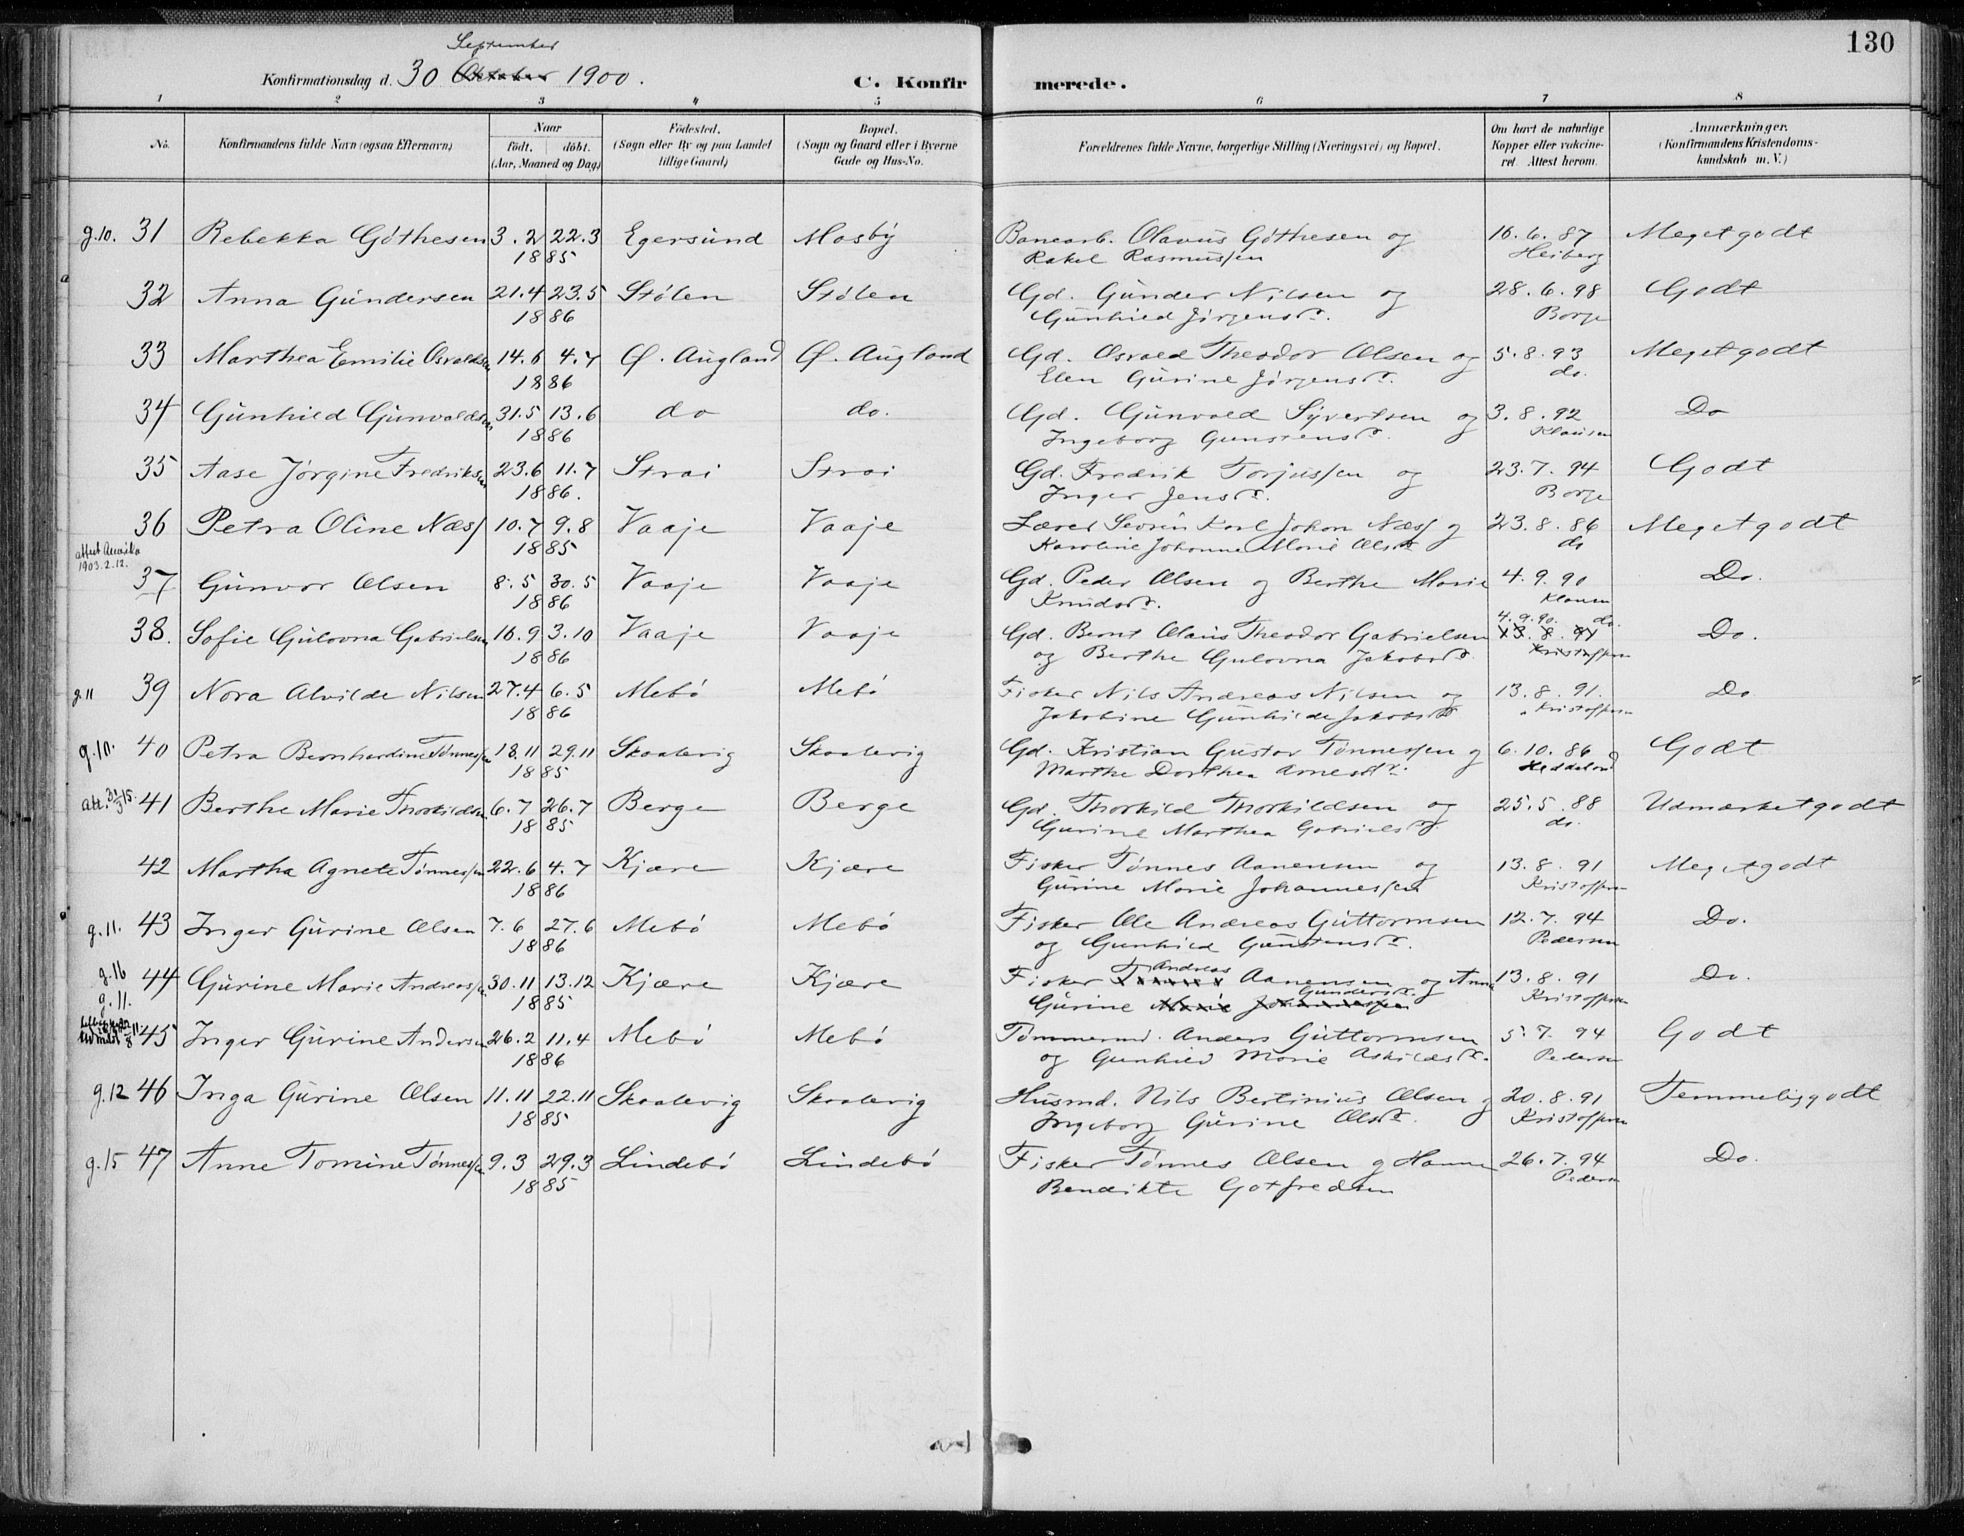 130
September
Konfirmationsdag d. 30 Oktober 1900.
C. Konfirmerede.
1 2 3 4 5 6 7 8
No.
Konfirmandens fulde Navn (ogsaa Efternavn)
Naar
født. døbt.
(Aar, Maaned og Dag)
Födested.
(Sogn eller By og paa Landet
tillige Gaard)
Bopæl.
(Sogn og Gaard eller i Byerne
Gade og Hus-No.
Forældrenes fulde Navne, borgerlige Stilling (Næringsvei) og Bopæl.
Om havt de naturlige
Kopper eller vakcine-
ret. Attest herom.
Anmærkninger.
(Konfirmandens Kristendoms-
kundskab m. V.)
g.10. 31 Rebekka Göthesen 3.2 22.3 Egersund Mosby Banearb. Olavus Göthesen og 16.6.87 Meget godt
1885 Rakel Rasmussen Heiberg
32 Anna Gundersen 21.4 23.5 Stølen Stølen Gd. Gunder Nilsen og 28.6.98 Godt
1886 Gunhild Jörgensdr. Borge
33 Marthea Emilie Osvaldsen 14.6 4.7 Ø. Augland Ø. Augland Gd. Osvald Theodor Olsen og 5.8.93 Meget godt
1886 Elen Gurine Jørgensdr. do.
34 Gunhild Gunvaldsen 31.5 13.6 do do. Gd. Gunvald Syvertsen og 3.8.92 Do
1886 Ingeborg Gunstensdr. Klausen
35 Aase Jørgine Fredriksen 23.6 11.7 Strai Strai Gd. Fredrik Torjussen og 23.7.94 Godt
1886. Inger Jensdr. Borge
36 Petra Oline Næss 10.7 9.8 Vaaje Vaaje Lærer Severin Karl Johan Næss og 23.8.86 Meget godt
1885 Karoline Johanne Marie Olsdr do
attest Amerika
1903.2.12.
37 Gunvor Olsen 8.5 30.5 Vaaje Vaaje Gd. Peder Olsen og Berthe Marie 4.9.90 Do.
1886 Knudsdr. Klausen
4.9.90. do.
38. Sofie Gulovna Gabrielsen 16.9 3.10 Vaaje Vaaje Gd. Bernt Olaus Theodor Gabrielsen 13.8.91 Do.
1886 og Berthe Gulovna Jakobsdr Kristoffersen
g.11 39 Nora Alvilde Nilsen 27.4 6.5 Mebø Mebø Fisker Nils Andreas Nilsen og 13.8.91. Do
1886 Jakobine Gunhilde Jakobsdr Kristoffersen
g.10. 40 Petra Bernhardine Tønnessen 18.11 29.11 Skaalevig Skaalevig Gd. Kristian Gustav Tønnessen og 6.10.86 Godt
1885 Marthe Dorthea Arnesdr. Heddeland
att. 31/3 15. 41 Berthe Marie Thorkildsen 6.7 26.7 Berge Berge Gd. Thorkild Thorkildsen og 25.5.88 Udmærket godt
1885 Gurine Marthea Gabrielsdr. do.
42 Martha Agnete Tønnessen 22.6 4.7 Kjære Kjære Fisker Tønnes Aanensen og 13.8.91 Meget godt
1886 Gurine Marie Johannessen Kristoffersen
g.11. 43 Inger Gurine Olsen 7.6 27.6 Mebø Mebø Fisker Ole Andreas Guttormsen 12.7.94 Do.
1886 og Gunhild Gunstensdr. Pedersen
g.16 Andreas
44 Gurine Marie Andreassen 30.11 13.12 Kjære Kjære Fisker Tønnes Aanensen og Anne 13.8.91 Do.
g.11. Gundersdr.
1885 Gurine Marie Johannessen Kristoffersen
45 Inger Gurine Andersen 26.2 11.4 Mebø Mebø Tømmermd. Anders Guttormsen 5.7.94 Godt
1886 og Gunhild Marie Askildsdr. Pedersen
g.12 46 Inga Gurine Olsen 11.11 22.11 Skaalevig Skaalevig Husmd. Nils Bertinius Olsen og 20.8.91 Temmelig godt
1885 Ingeborg Gurine Olsdr. Kristoffersen
g.15 47 Anne Tomine Tønnessen 9.3 29.3 Lindebø Lindebø Fisker Tønnes Olsen og Hanne 26.7.94 Do.
1885 Bendikte Gotfredsen Pedersen